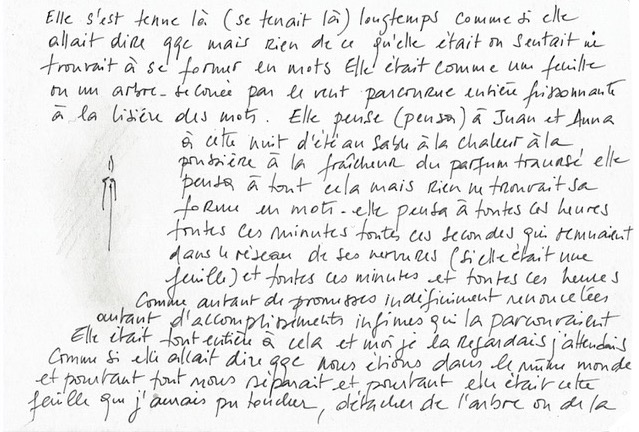 Elle s'est tenue là (se tenait là) longtemps comme si elle
allait dire qqc mais rien de ce qu'elle était ou sentait ne
trouvait à se former en mots Elle était comme une feuille
ou un arbre - secouée par le vent parcourue entière frissonnante
à la lisière des mots. Elle pense (pensa) à Juan et Anna
à cette nuit d'été au sable à la chaleur à la
poussière à la fraîcheur du parfum traversé elle
pensa à tout cela mais rien ne trouvait sa
forme en mots - elle pensa à toutes ces heures
toutes ces minutes toutes ces secondes qui remuaient
dans le réseau de ses nervures (si elle était une
feuille) et toutes ces minutes et toutes ces heures
Comme autant de promesses indéfiniment renouvelées
autant d'accomplissements infimes qui la parcouraient
Elle était tout entière à cela et moi je la regardais j'attendais
Comme si elle allait dire qqc nous étions dans le même monde
et pourtant tout nous séparait et pourtant elle était cette
feuille que j'aurais pu toucher, détacher de l'arbre ou de la